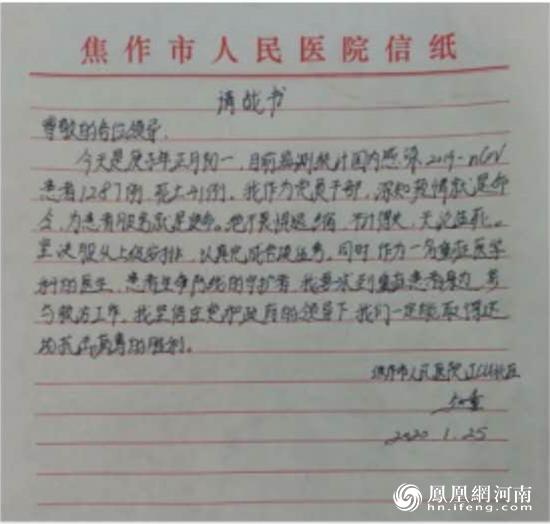 焦作市人民医院信纸
请战书
尊敬的各位领导:
今天是庚子年正月初一,目前监测统计国内感染2019-nCoV
患者1287例,死亡41例。我作为党员干部,深知疫情就是命
令,为患者服务就是使命。绝不畏惧退缩,不计得失,无论生死。
坚决服从上级安排,认真完成各项任务。同时作为一名重症医学
科的医生,患者生命防线的守护者,我要求到重症患者身边,参
与救治工作。我坚信在党和政府的领导下我们一定能取得这
场抗击病毒的胜利。
焦作市人民医院ICU
2020.1.25
凤凰網河南
hn.ifeng.com